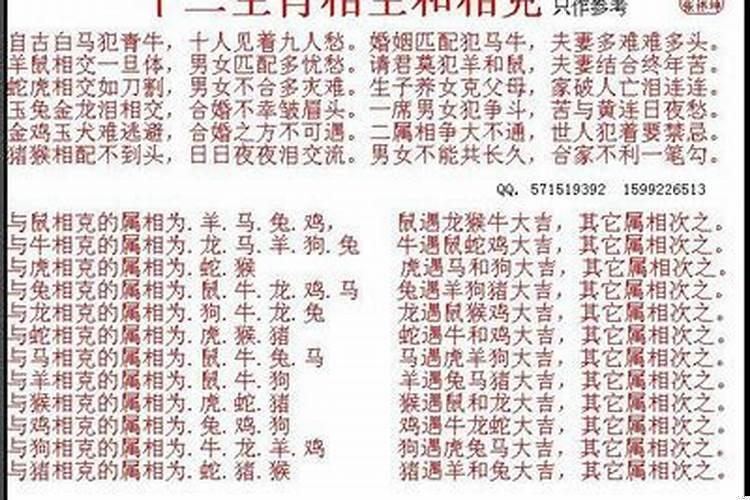 十二生肖相生和相克 只作参考
自古白马犯青牛，十人见着九人愁。婚姻匹配犯马牛，夫妻多难难多头。
羊鼠相交一旦体，男女匹配多忧愁。请君莫犯羊和鼠，夫妻结合终年苦。
蛇虎相交如刀割，男女不合多灾难。生子养女克父母，家破人亡泪连连。
玉兔金龙泪相交，合婚不幸皱眉头。一席男女犯争斗，苦与黄连日夜愁。
金鸡玉犬难逃避，合婚之方不可遇。二属相争大不通，世人犯着要禁忌。
猪猴相配不到头，日日夜夜泪交流。男女不能共长久，合家不利一笔勾。
QQ. 571519392 1599226513
与鼠相克的属相为.羊.马.兔.鸡， 鼠遇龙猴牛大吉，其它属相次之。
与牛相克的属相为.龙.马.羊.狗.兔 牛遇鼠蛇鸡大吉，其它属相次之。
与虎相克的属相为.蛇.猴 虎遇马和狗大吉，其它属相次之。
与兔相克的属相为.鼠.牛.龙.鸡.马 兔遇羊狗猪大吉，其它属相次之。
与龙相克的属相为.狗.牛.龙.兔 龙遇鼠猴鸡大吉，其它属相次之。
与蛇相克的属相为.虎.猴.猪 蛇遇牛和鸡大吉，其它属相次之。
与马相克的属相为.鼠.牛.兔.马 马遇虎羊狗大吉，其它属相次之。
与羊相克的属相为.鼠.牛.狗 羊遇兔马猪大吉，其它属相次之。
与猴相克的属相为.虎.蛇.猪 猴遇鼠和龙大吉，其它属相次之。
与鸡相克的属相为.兔.鸡.狗 鸡遇牛龙蛇大吉，其它属相次之。
与狗相克的属相为.牛.龙.羊.鸡 狗遇虎兔马大吉，其它属相次之。
与猪相克的属相为.蛇.猪.猴 猪遇羊和兔大吉，其它属相次之。